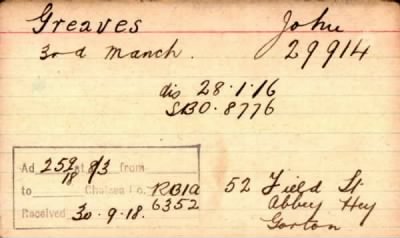 Greaves John
3rd Manch. 29914
dis 28.1.16
SBO.8776
Ad 259/18 at 8/3 from
to Chelsea Co. RB1a
Received 30.9.18. 6352
52 Field St
Abbey Hey
Gorton